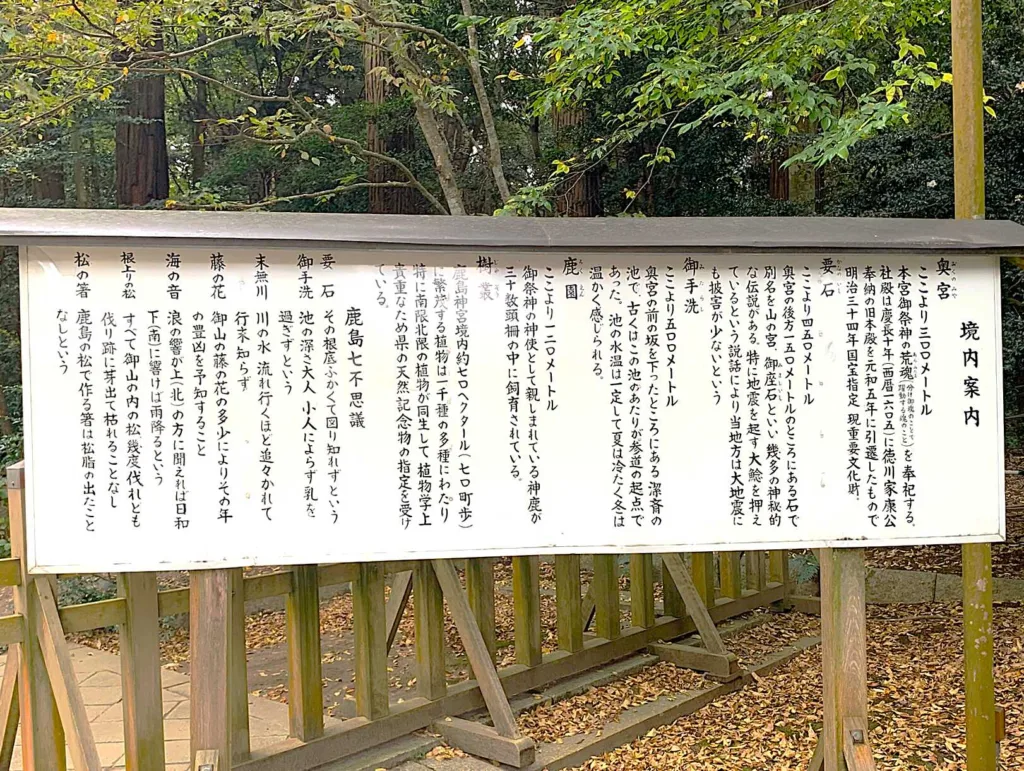 境内案内
奥宮
おくのみや
ここより三〇〇メートル
本宮御祭神の荒魂を奉祀する。
社殿は慶長十年(西暦一六〇五)に徳川家康公
奉納の旧本殿を元和五年に引遷したもので
明治三十四年国宝指定 現重要文化財。
要石
かなめいし
ここより四五〇メートル
奥宮の後方一五〇メートルのところにある石で
別名を山の宮、御座石といい幾多の神秘的
な伝説がある。特に地震を起す大鯰を押え
ているという説話により当地方は大地震に
も被害が少ないという。
御手洗
みたらし
ここより五〇〇メートル
奥宮の前の坂を下ったところにある潔斎の
池で、古くはこの池のあたりが参道の起点で
あった。池の水温は一定して夏は冷たく冬は
温かく感じられる。
鹿園
ろくえん
ここより一二〇メートル
御祭神の神使として親しまれている神鹿が
三十数頭柵の中に飼育されている。
樹叢
じゅそう
鹿島神宮境内約七〇ヘクタール(七〇町歩)
に繁茂する植物は一千種の多種にわたり
特に南限北限の植物が同生して植物学上
貴重なため県の天然記念物の指定を受け
ている。
鹿島七不思議
要石 その根底ふかくて図り知れずという
御手洗 池の深さ大人 小人によらず乳を
過ぎずという
末無川 川の水 流れ行くほど追々かれて
行末知らず
藤の花 御山の藤の花の多少によりその年
の豊凶を予知すること
海の音 浪の響が上(北)の方に聞えれば日和
下(南)に響けば雨降るという
根上りの松 すべて御山の内の松幾度伐れども
伐り跡に芽出て枯れることなし
松の箸 鹿島の松で作る箸は松脂の出たこと
なしという